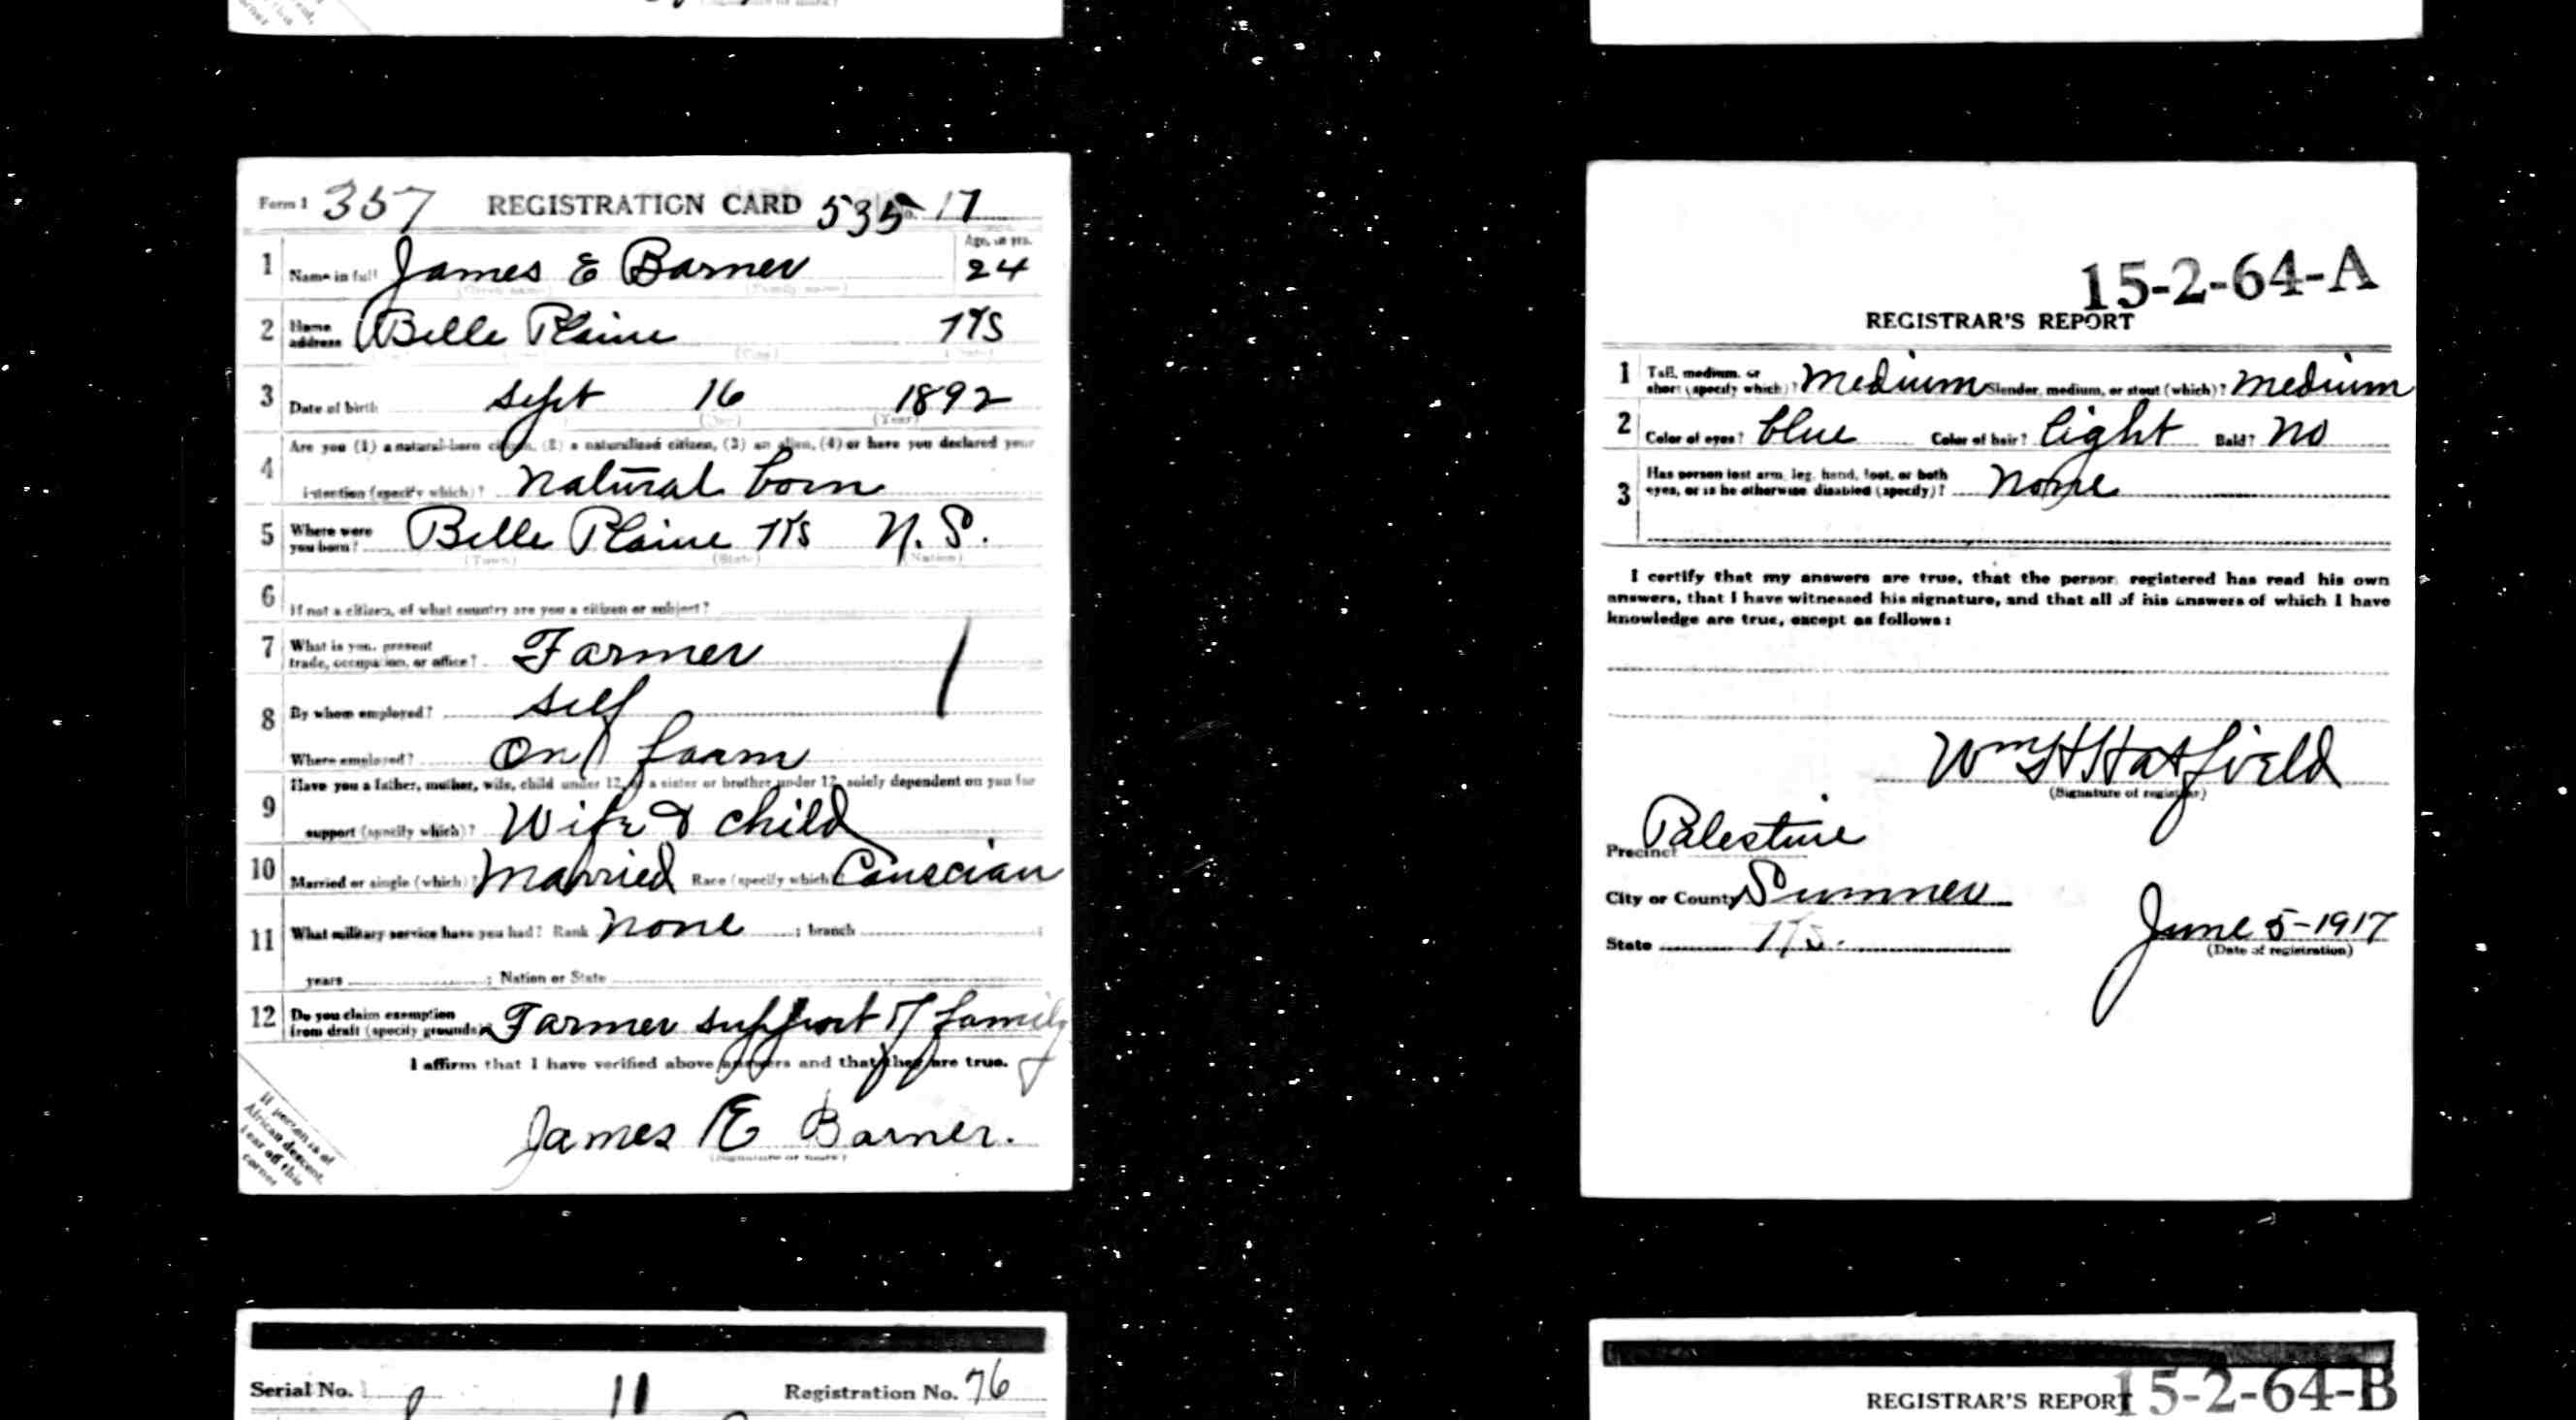 Form 1 357 REGISTRATION CARD 535 No. 17
Age, in yrs.
1 Name in full James E Barner 24
(Given name) (Family name)
2 Home address Belle Plaine Ks
(City) (State)
3 Date of birth Sept 16 1892
(Day) (Year)
Are you (1) a natural-born citizen, (2) a naturalized citizen, (3) an alien, (4) or have you declared your
4 intention (specify which)? natural born
5 Where were you born? Belle Plaine Ks U.S.
(Town) (State) (Nation)
6 If not a citizen, of what country are you a citizen or subject?
7 What is your present trade, occupation, or office? Farmer
8 By whom employed? self
Where employed? On farm
Have you a father, mother, wife, child under 12, or a sister or brother under 12, solely dependent on you for
9 support (specify which)? Wife & child
10 Married or single (which)? Married Race (specify which) Causcian
11 What military service have you had? Rank none ; branch
years ; Nation or State
12 Do you claim exemption from draft (specify grounds)? Farmer support of family
I affirm that I have verified above answers and that they are true.
James E Barner.
(Signature or mark)
If person is of
African descent,
tear off this
corner
15-2-64-A
REGISTRAR'S REPORT
1 Tall, medium, or short (specify which)? Medium Slender, medium, or stout (which)? Medium
2 Color of eyes? blue Color of hair? light Bald? No
3 Has person lost arm, leg, hand, foot, or both eyes, or is he otherwise disabled (specify)? None
I certify that my answers are true, that the person registered has read his own
answers, that I have witnessed his signature, and that all of his answers of which I have
knowledge are true, except as follows:
Wm H Hatfield
(Signature of registrar)
Precinct Palestine
City or County Sumner
State Ks.
June 5-1917
(Date of registration)
Serial No. 11 Registration No. 76
REGISTRAR'S REPORT 15-2-64-B